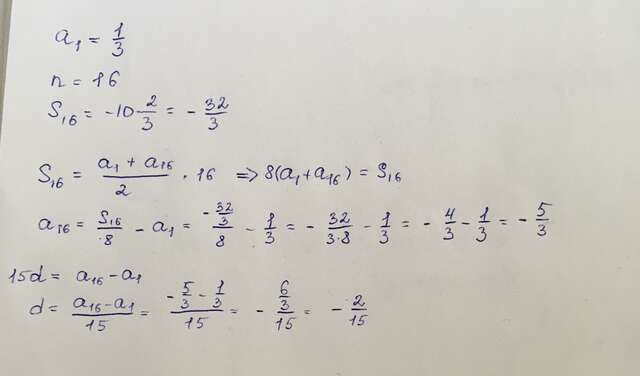 a₁ = 1/3
n = 16
S₁₆ = -10 2/3 = - 32/3
S₁₆ = (a₁ + a₁₆)/2 · 16 => 8(a₁+a₁₆) = S₁₆
a₁₆ = S₁₆/·8 - a₁ = (-32/3)/8 - 1/3 = - 32/(3·8) - 1/3 = - 4/3 - 1/3 = - 5/3
15d = a₁₆ - a₁
d = (a₁₆-a₁)/15 = (-5/3 - 1/3)/15 = - (6/3)/15 = - 2/15